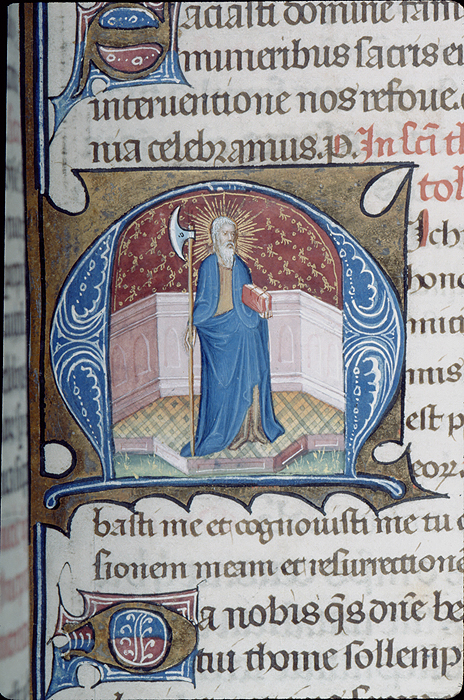 Saciasti domine fam
muneribus sacris
interuentione nos refoue.
nia celebramus. P. In sci th
tol
Mich
hono
mici
mis
est p
eor
basti me et cognouisti me tu c
sionem meam et resurrectione
Da nobis qs dne be
tui thome sollemp